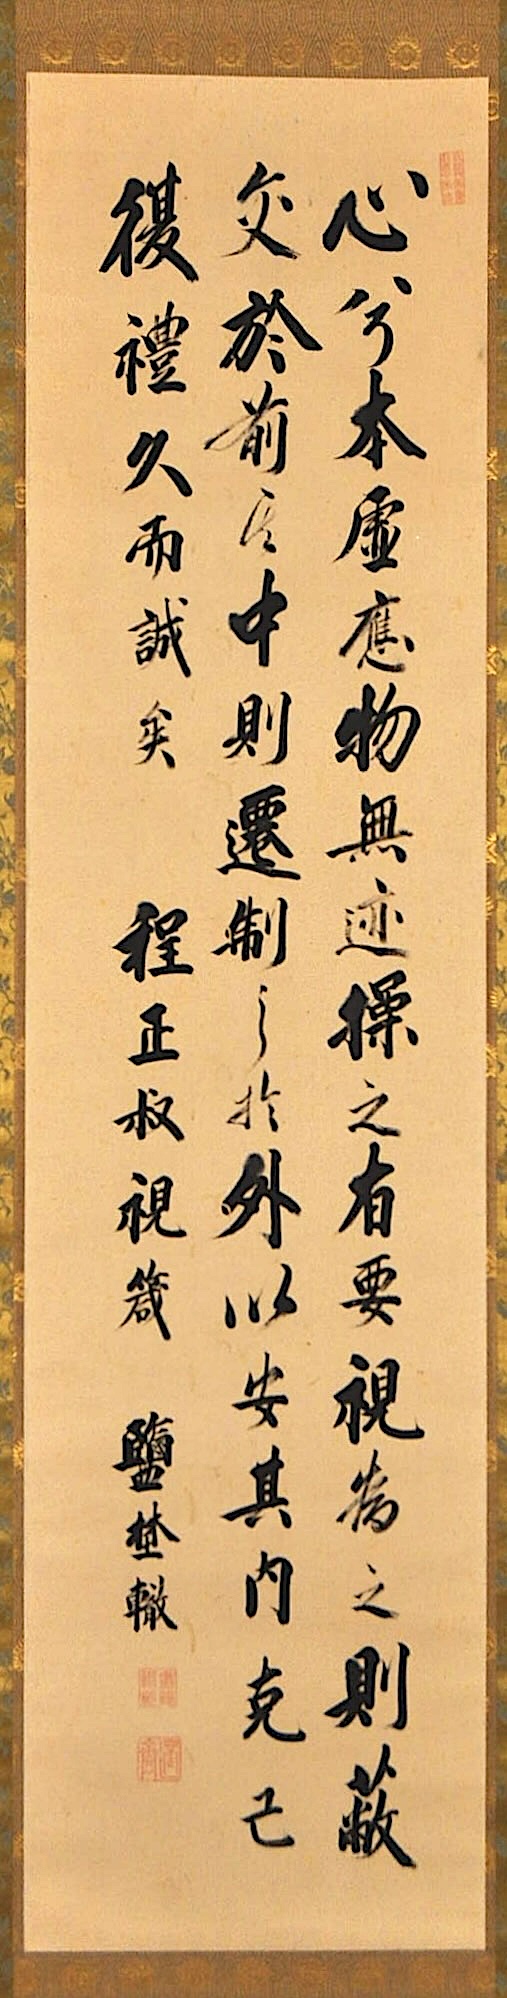 心兮本虛應物無迹操之有要視為之則蔽
交於前其中則遷制之於外以安其內克己
復禮久而誠矣　程正叔視箴　鹽埜轍